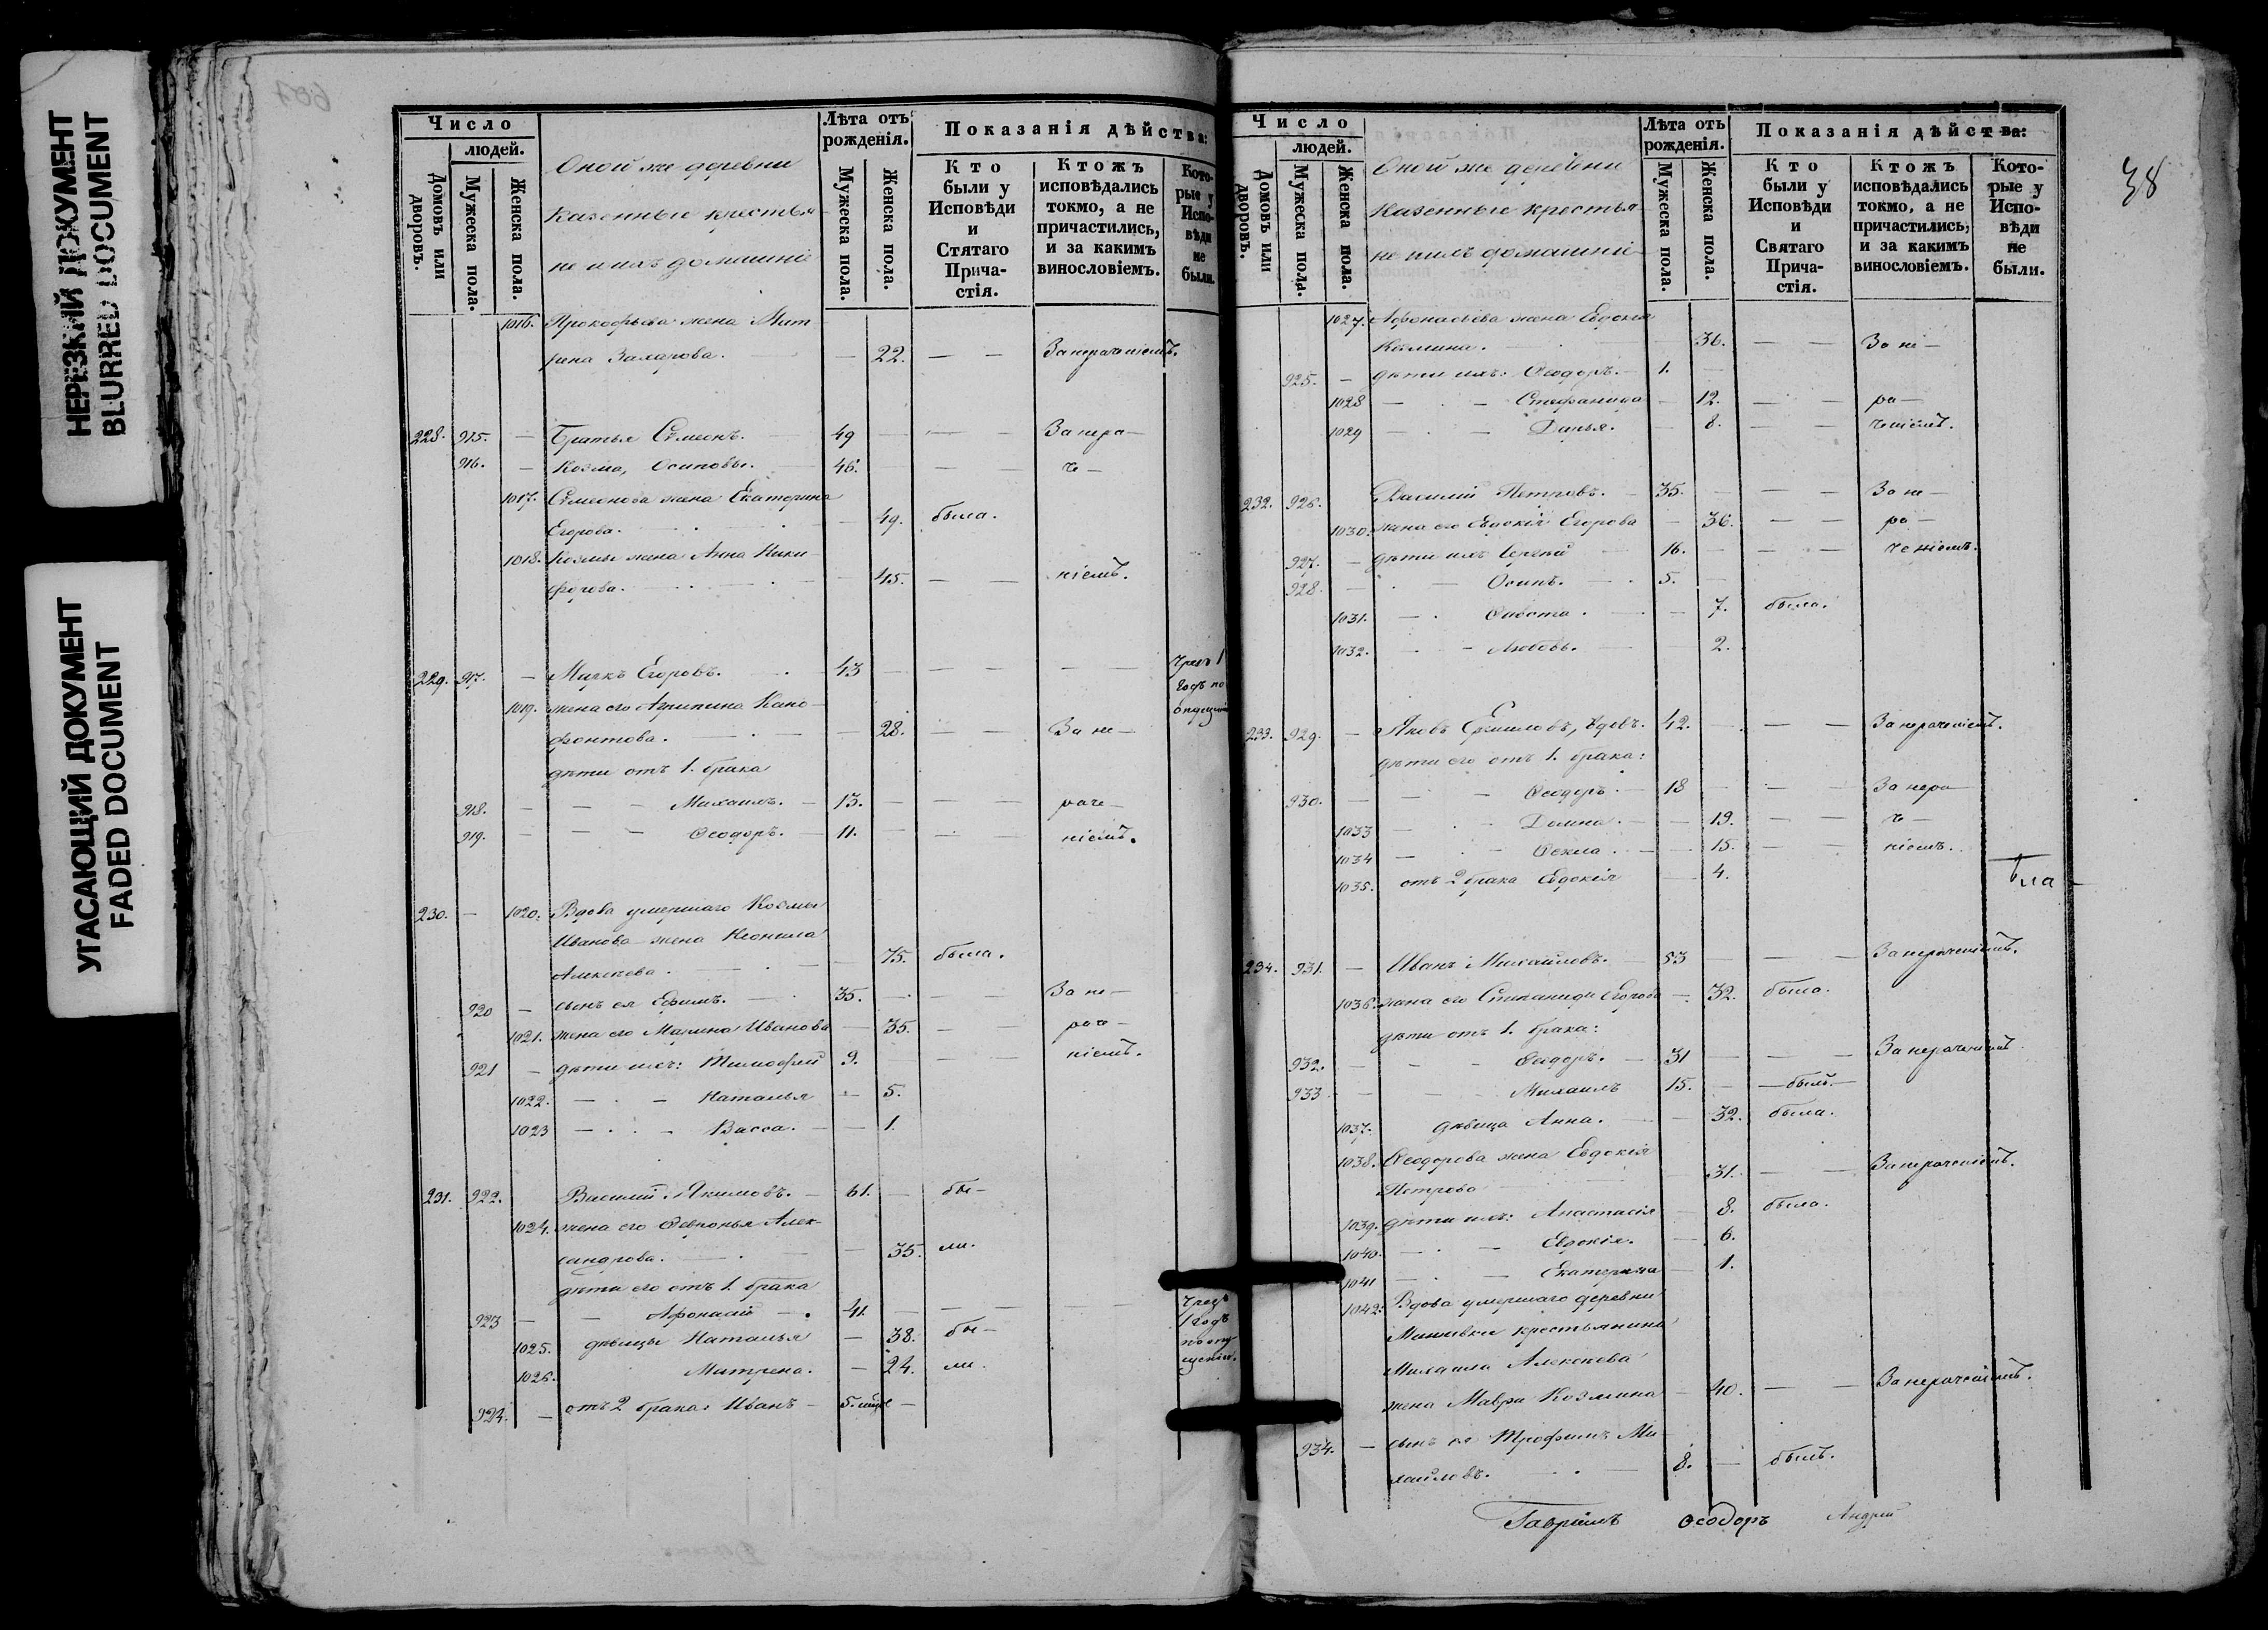 НЕРЕЗКИЙ ДОКУМЕНТ
BLURRED DOCUMENT
УГАСАЮЩИЙ ДОКУМЕНТ
FADED DOCUMENT
Число
людей.
Домовъ или дворовъ.
Мужеска пола.
Женска пола.
Оной же деревни
казенные крестья-
не и ихъ домашніе
Лѣта отъ рожденія.
Мужеска пола.
Женска пола.
Показанія дѣйства:
Кто были у Исповѣди и Стятаго Прича-стія.
Ктожъ исповѣдались токмо, а не причастились, и за какимъ винословіемъ.
Кото-рые у Испо-вѣди не были.
1016. Прокофьева жена Мат
рена Захарова. — 22. — — За нераченіемъ.
228. 915. — Братья Симеонъ. 49 — — За нера—
916. — Козма, Осиповы. 46. — — че—
1017. Симеонова жена Екатерина
Егорова. — 49. была.
1018. Козмы жена Анна Ники-
форова. — 45. — — ніемъ.
229. 917. — Маркъ Егоровъ. 43 — — — — чрезъ 1
годъ по
1019. жена его Агрипина Кано-
фонтова. — 28. — — За не—
дѣти отъ 1. брака
918. — — — Михаилъ. — 13. — — — раче—
919. — — — Ѳеодоръ. — 11. — — — ніемъ.
230. — 1020. Вдова умершаго Козмы
Иванова жена Неонила
Алексѣева. — 75. была.
920 — сынъ ея Ефимъ. 35. — — За не—
1021. жена его Марина Иванова — 35. — — раче—
921 — дѣти ихъ: Тимофей 9. — — ніемъ.
1022. — — Наталья — 5.
1023 — — Васса. — 1.
231. 922. Василій Якимовъ. — 61. — бы—
1024. жена его Ѳевронья Алек-
сандрова. — 35. ли.
дѣти его отъ 1. брака
923 — — Афонасій — 41. — — — чрезъ
1 годъ
по опу-
щенію.
1025. дѣвицы Наталья — 38. бы—
1026. Матрена. — 24. ли.
924. — отъ 2 брака: Иванъ — 5.
Число
людей.
Домовъ или дворовъ.
Мужеска пола.
Женска пола.
Оной же деревни
казенные крестья-
не и ихъ домашніе
Лѣта отъ рожденія.
Мужеска пола.
Женска пола.
Показанія дѣйства:
Кто были у Исповѣди и Святаго Прича-стія.
Ктожъ исповѣдались токмо, а не причастились, и за какимъ винословіемъ.
Кото-рые у Испо-вѣди не были.
38
1027. Афонасьева жена Евдокія
36. — — За не—
925. — дѣти ихъ: Ѳеодоръ. — 1.
1028 — — Стефанида — 12. — — ра—
1029 — — Дарья. — 8. — — ченіемъ.
232. 926. Василій Петровъ. — 35. — — — За не—
1030. жена его Евдокія Егорова — 36. — — ра—
927. — дѣти ихъ Сергей 16. — — — ченіемъ.
928. — Осипъ. 5. —
1031. — — 7. была.
1032. — Любовь. — 2.
233. 929. — Яковъ Ермиловъ, вдовъ. 42. — — За нераченіемъ.
дѣти его отъ 1. брака:
930. — — Ѳеодоръ. — 18 — — — За нера—
1033 — — Домна. — 19. — — че—
1034 — — Ѳекла. — 15. — — ніемъ.
1035. отъ 2 брака Евдокія — 4.
234. 931. — Иванъ Михайловъ. — 53 — — — За нераченіемъ.
1036. жена его Степанида Егорова — 32. была.
дѣти отъ 1. брака:
932. — — Ѳеодоръ. — 31 — — За нераченіемъ
933 — — Михаилъ 15. — — былъ. —
1037. дѣвица Анна. — 32. была.
1038. Ѳеодорова жена Евдокія
Петрова 31. — — За нераченіемъ.
1039. дѣти ихъ: Анастасія — 8. была.
1040. — — Евдокія. — 6.
1041 — — Екатерина — 1.
1042. Вдова умершаго деревни
крестьянина
Михаила Алексѣева
жена Мавра Козмина — 40. — — За нераченіемъ.
934. — сынъ ея Трофимъ Ми-
хайловъ. — 8. — былъ.
Гавріилъ Ѳеодоръ Андрей